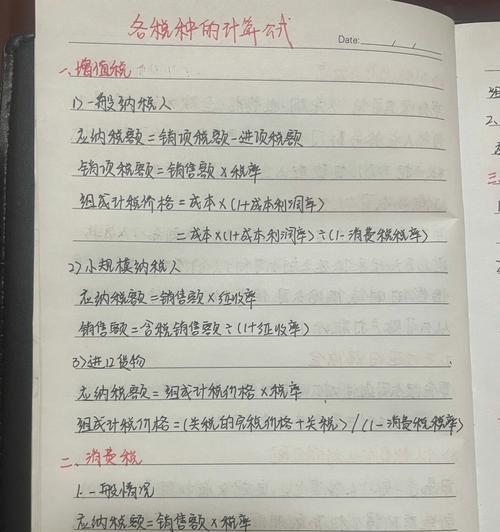 各税种的计算公式
Date: / /
一、增值税
1)一般纳税人
应纳税额=销项税额-进项税额
销项税额=销售额×税率
组成计税价格=成本×(1+成本利润率)
=成本×(1+成本利润率)÷(1-消费税税率)
2)小规模纳税人
应纳税额=销售额×征收率
销售额=含税销售额÷(1+征收率)
3)进口货物
应纳税额=组成计税价格×税率
组成计税价格=(关税的完税价格+关税)/(1-消费税税率)
二、消费税
1.一般情况
应纳税额=销售额×税率
组
2、
三